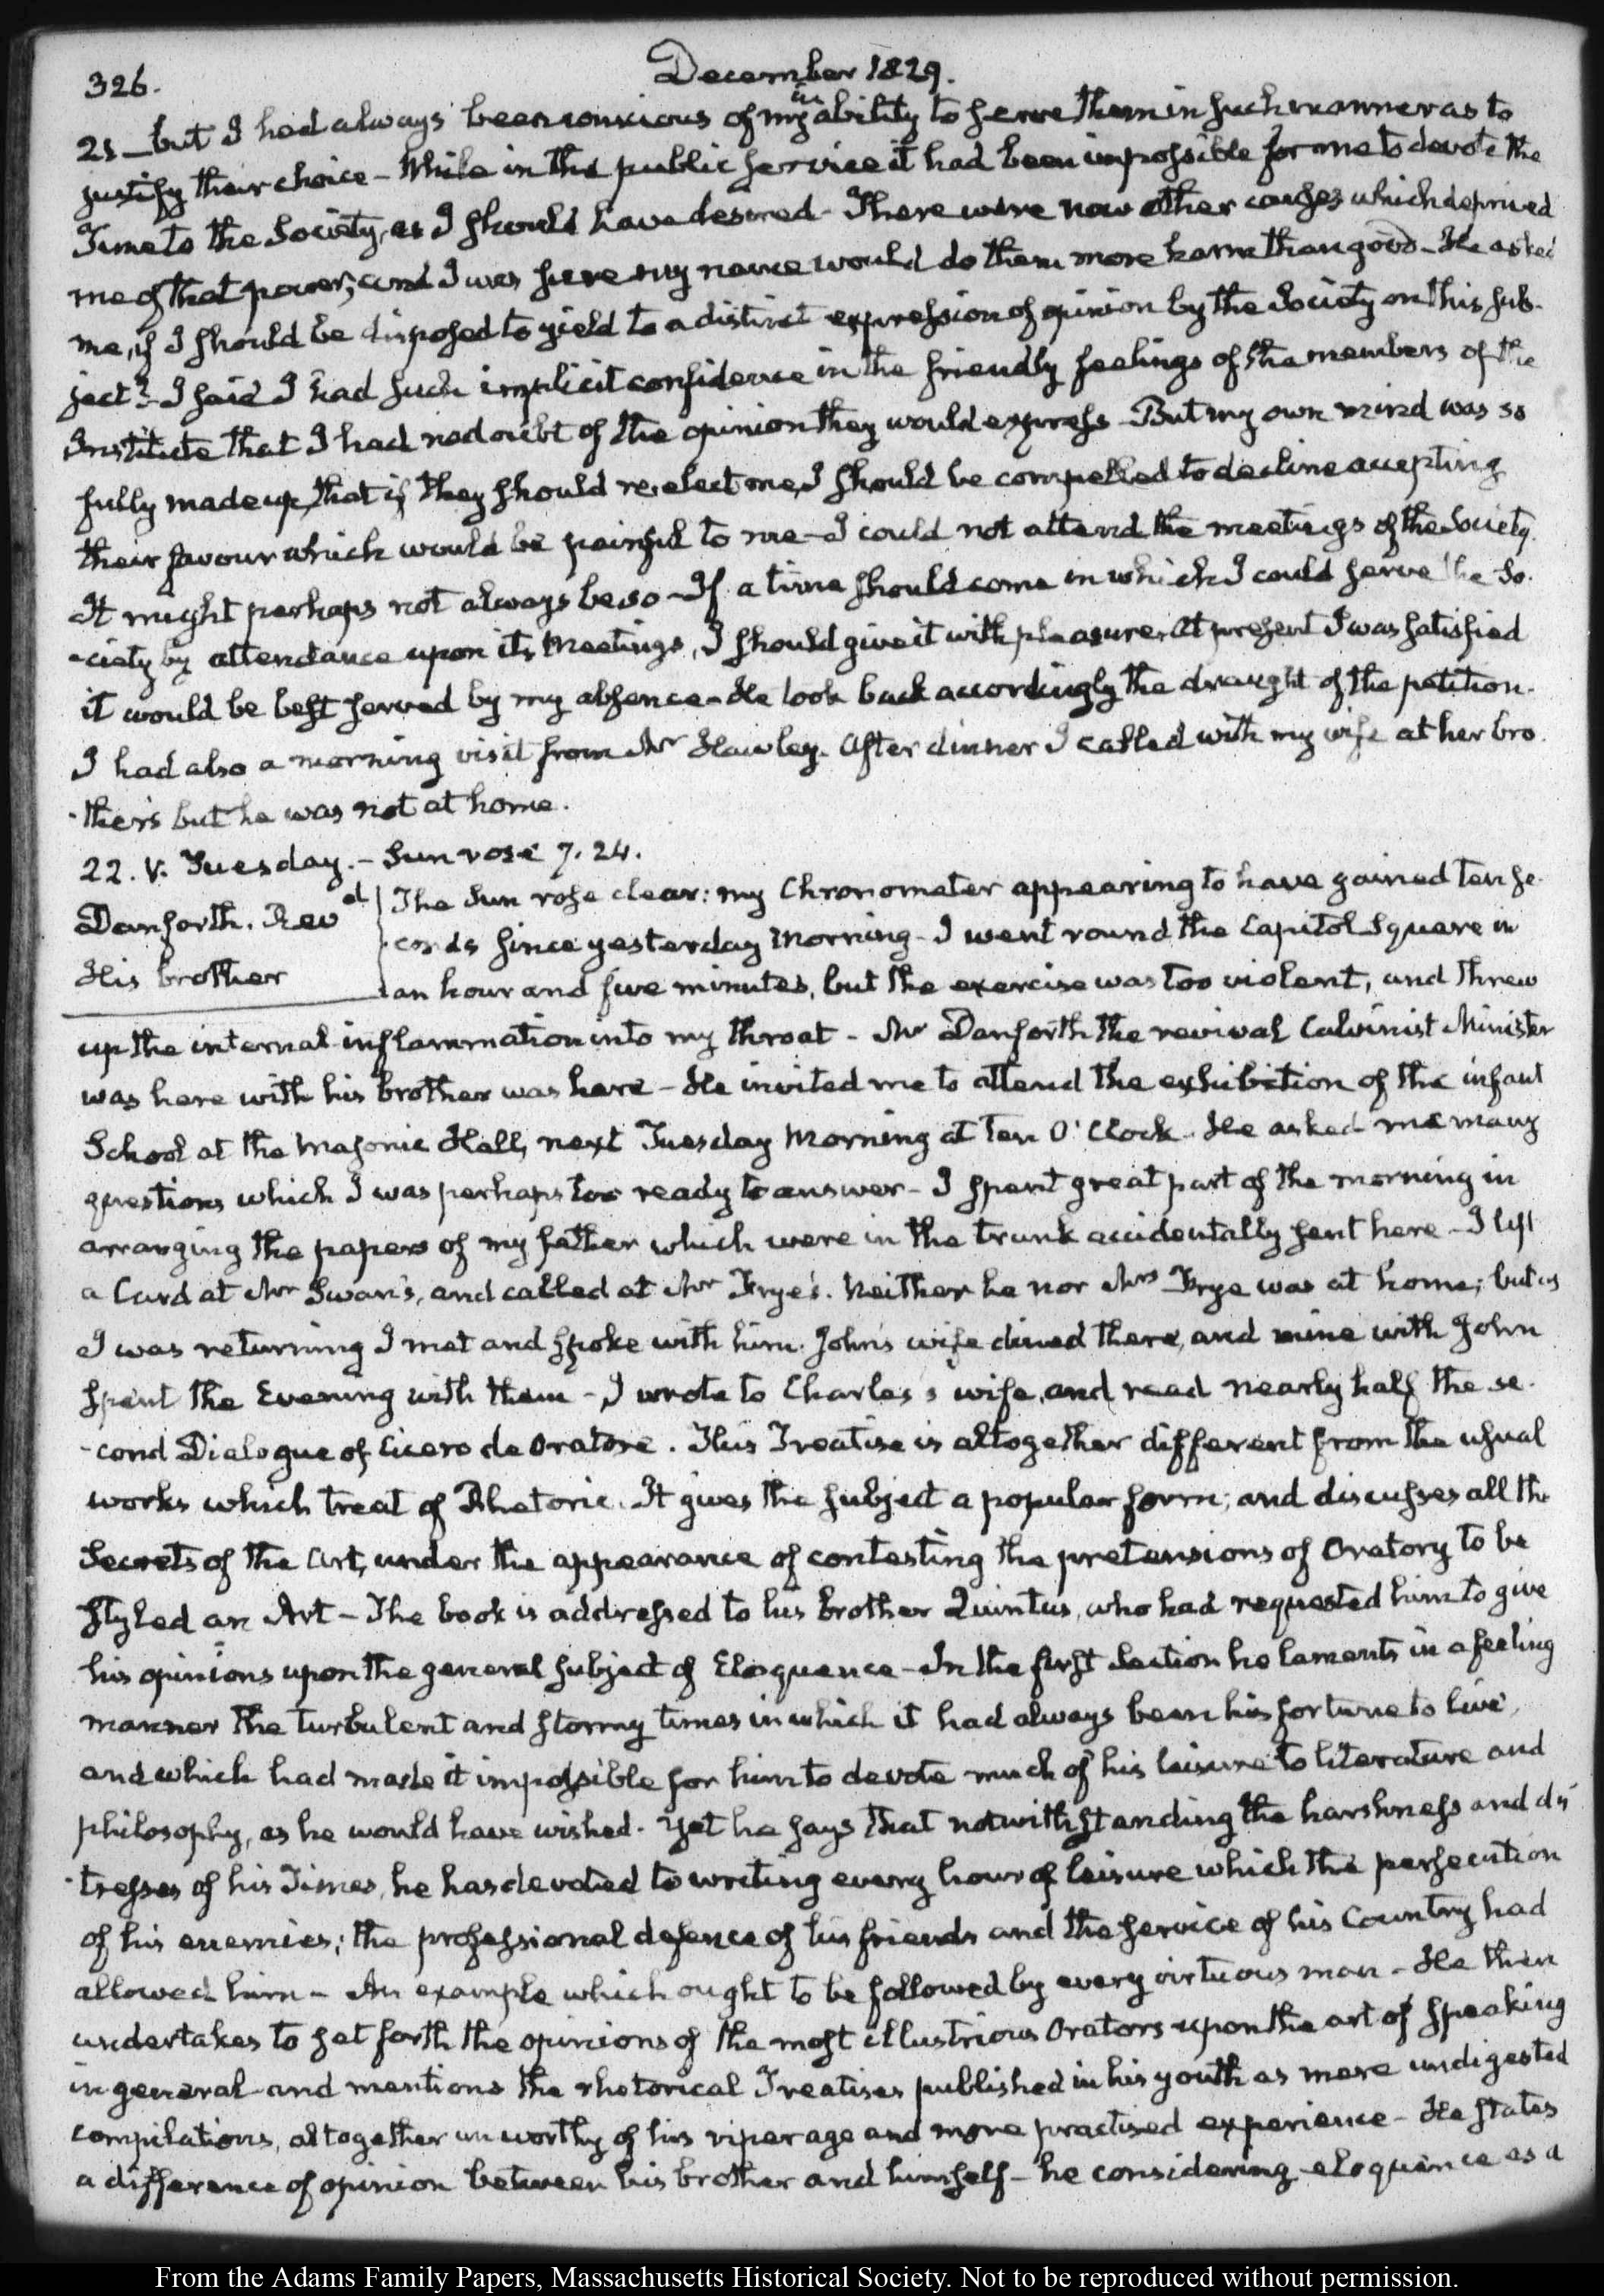 326.
December 1829.
21 — but I had always been conscious of my inability to serve them in such manner as to
justify their choice – While in the public service it had been impossible for me to devote the
Time to the Society, as I should have desired – There were now other causes which deprived
me of that power; and I was sure my name would do them more harm than good – He asked
me, if I should be disposed to yield to a distinct expression of opinion by the Society on this sub-
ject? – I said I had such implicit confidence in the friendly feelings of the members of the
Institute that I had no doubt of the opinion they would express – But my own mind was so
fully made up, that if they should re-elect me, I should be compelled to decline accepting
their favour which would be painful to me – I could not attend the meetings of the Society.
It might perhaps not always be so – If a time should come in which I could serve the So-
-ciety by attendance upon its Meetings, I should give it with pleasure. At present I was satisfied
it would be best served by my absence – He took back accordingly the draught of the petition.
I had also a morning visit from Mr Hawley. After dinner I called with my wife at her bro-
-ther's but he was not at home.
22. V. Tuesday. – Sun rose 7. 24.
Danforth. Revd
His brother
The Sun rose clear: my Chronometer appearing to have gained ten se-
-conds since yesterday Morning – I went round the Capitol Square in
an hour and five minutes, but the exercise was too violent, and threw
up the internal inflammation into my throat – Mr Danforth the revival Calvinist Minister
was here with his brother was here – He invited me to attend the exhibition of the infant
School at the Masonic Hall, next Tuesday Morning at ten O'Clock. He asked me many
questions which I was perhaps too ready to answer – I spent great part of the morning in
arranging the papers of my father which were in the trunk accidentally sent here – I left
a Card at Mr Swan's, and called at Mr Frye's. Neither he nor Mrs Frye was at home; but as
I was returning I met and spoke with him. John's wife dined there, and mine with John
spent the Evening with them – I wrote to Charles's wife, and read nearly half the se-
-cond Dialogue of Cicero de Oratore. This Treatise is altogether different from the usual
works which treat of Rhetoric. It gives the subject a popular form; and discusses all the
Secrets of the Art, under the appearance of contesting the pretensions of Oratory to be
styled an Art – The book is addressed to his brother Quintus, who had requested him to give
his opinions upon the general subject of Eloquence – In the first Section he laments in a feeling
manner the turbulent and stormy times in which it had always been his fortune to live,
and which had made it impossible for him to devote much of his leisure to literature and
philosophy, as he would have wished. Yet he says that notwithstanding the harshness and dis-
-tresses of his Times, he has devoted to writing every hour of leisure which the persecution
of his enemies; the professional defence of his friends and the service of his Country had
allowed him – An example which ought to be followed by every virtuous man – He then
undertakes to set forth the opinions of the most illustrious Orators upon the art of speaking
in general and mentions the rhetorical Treatises published in his youth as mere undigested
compilations, altogether unworthy of his riper age and more practised experience – He states
a difference of opinion between his brother and himself – he considering eloquence as a
From the Adams Family Papers, Massachusetts Historical Society. Not to be reproduced without permission.